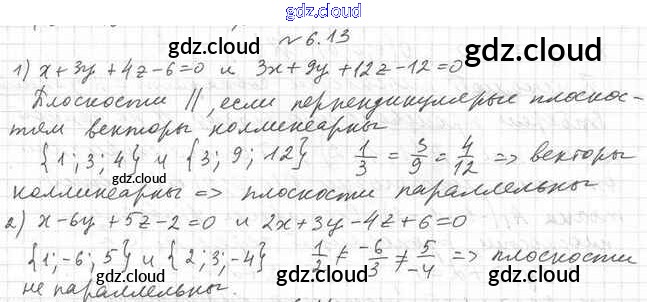 gdz.cloud
№ 6.13
gdz.cloud gdz.cloud
1) x+3y+4z-6=0 и 3x+9y+12z-12=0
Плоскости ||, если перпендикулярые плоскос-
тям векторы коллинеарны
{1; 3; 4} и {3; 9; 12} 1/3 = 3/9 = 4/12 => векторы
gdz.cloud gdz.cloud
коллинеарны => плоскости параллельны
gdz.cloud gdz.cloud
2) x-6y+5z-2=0 и 2x+3y-4z+6=0
{1; -6; 5} и {2; 3; -4} 1/2 ≠ -6/3 ≠ 5/-4 => плоскости
gdz.cloud gdz.cloud
не параллельны.